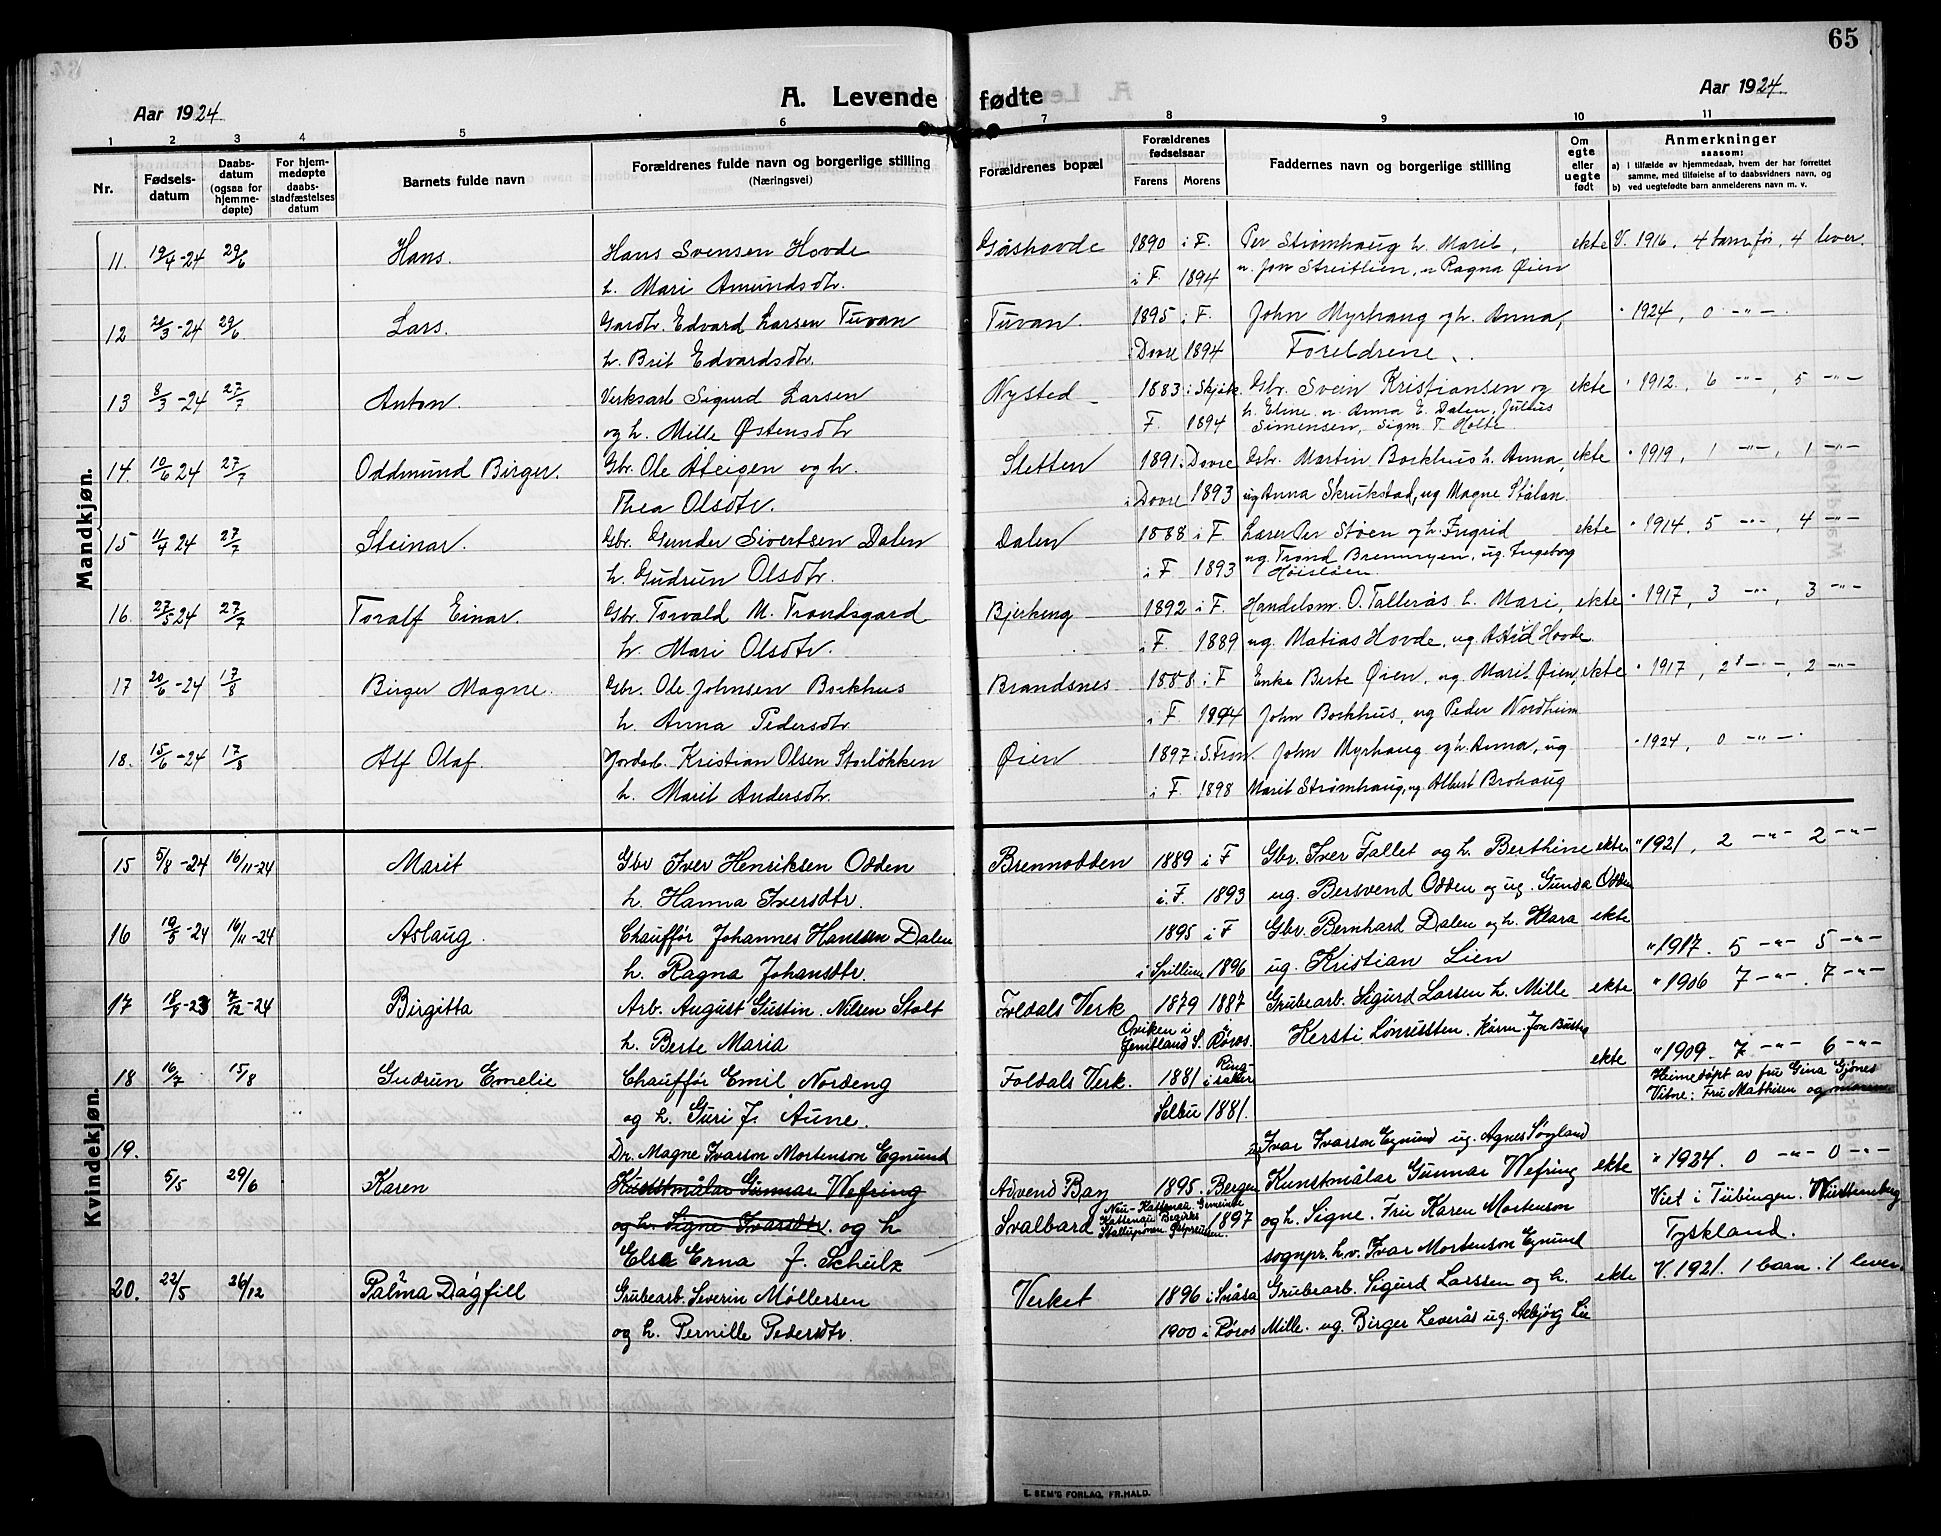 65
Aar 1924
A. Levende fødte
Aar 1924
1 2 3 4 5 6 7 8 9 10 11
Nr.
Fødselsdatum
Daabsdatum (ogsaa for hjemmedøpte)
For hjemmedøpte daabsstadfæstelses datum
Barnets fulde navn
Forældrenes fulde navn og borgerlige stilling
(Næringsvei)
Forældrenes bopæl
Forældrenes fødselsaar
Farens Morens
Faddernes navn og borgerlige stilling
Om egte eller uegte født
Anmerkninger
saasom:
a) i tilfælde av hjemmedaab, hvem der har forrettet samme, med tilføielse af to daabsvidners navn, og
b) ved uegtefødte barn anmelderens navn m. v.
Mandkjøn.
11. 19/4-24 29/6 Hans. Hans Svensen Hovde Gåshovde 1890 i F. Per Strømhaug h. Marit, ekte V. 1916, 4 barn før, 4 lever.
h. Mari Amundsdtr. i F 1894 u. Jon Streitlien, u Ragna Øien
12 21/3-24 29/6 Lars. Gardbr. Edvard Larsen Tuvan Tuvan. 1895 i F. John Myrhaug og h. Anna, " 1924, 0 -"-
h. Brit Edvardsdtr. i Dovre 1894 Foreldrene.
13 8/3-24 27/7 Anton. Verksarb Sigurd Larsen Nysted 1883 i Skjåk Gbr. Svein Kristiansen og ekte " 1912, 6 -"-, 5 -"-
og h. Mille Østensdtr F. 1894 h. Eline u. Anna E. Dalen, Julius
Simensen, Sigm. T. Holte.
14. 10/6 24 27/7 Oddmund Birger. Gbr. Ole Ateigen og h. Sletten 1891 i Dovre Gbr. Martin Borkhus h. Anna, ekte " 1919, 1 -"-, 1 -"-
Thea Olsdtr. i Dovre 1893 ug Anna Skrukstad, ug Magne Stølan.
15 11/4 24 27/7 Steinar. Gbr. Gunder Sivertsen Dalen Dalen 1888 i F Lærer Per Støen og h. Ingrid ekte " 1914. 5 -"-, 4 -"-
h. Gudrun Olsdtr. i F 1893 ug. Trond Brennmyen, ug. Ingeborg
Høisløen
16. 27/5-24 27/7 Toralf Einar. Gbr. Torvald M. Trondsgard Bjerkeng 1892 i F. Handelsm. O. Tallerås h. Mari, ekte " 1917, 3 -"-, 3 -"-
h. Mari Olsdtr. i F. 1889 ug. Matias Hovde, ug. Astrid Hovde
17 20/6-24 17/8 Birger Magne. Gbr. Ole Johnsen Borkhus Brandsnes 1888 i F Enke Berte Øien, ug Marit Øien, ekte " 1917, 2 -"-, 2 -"-
h. Anna Pedersdtr i F 1894 John Borkhus, ug Peder Nordheim
18. 15/6-24 17/8 Alf Olaf. Jordsb. Kristian Olsen Storløkken Øien 1897 i S. Fron John Myrhaug og h. Anna, ug " 1924, 0 -"-
h. Marit Andersdtr. i F. 1898 Marit Strømhaug, ug. Albert Brohaug
Kvindekjøn.
15 5/8-24 16/11-24 Marit Gbr Iver Henriksen Odden Brennodden 1889 i F Gbr. Iver Fallet og h. Berthine ekte " 1921, 2 -"- 2 -"-
h. Hanna Iversdtr. i F. 1893 ug. Bersvend Odden og ug. Gunda Odden
16 19/5-24 16/11-24 Aslaug. Chauffør Johannes Hanssen Dalen 1895 i F Gbr. Bernhard Dalen og h. Klara ekte
h. Ragna Johansdtr. i Spillum 1896 ug. Kristian Lien " 1917. 5 -"- 5 -"-
17 2/12-24 Birgitta Arb. August Gustin. Nilsen Stolt Foldals Verk 1879 1887 Grubearb. Sigurd Larsen h. Mille ekte " 1906 7 -"-. 7 -"-
h. Berte Maria Oviken i Jemtland S. i Røros. Kersti
18 16/7 15/8 Gudrun Emelie Chauffør Emil Nordeng Foldals Verk. 1881 Ringsaker ekte " 1909. 7 -"- 6 -"-
og h. Guri J. Aune. Selbu 1881. Heimedøpt av fru Gina Gjønes
Vitne: Fru Mathisen og
19. Dr. Magne Ivarson Mortenson Egnund Ivar Ivarson Egnund ug. Agnes Søyland
5/5 29/6 Karen Kunstmålar Gunnar Wefring Advend Bay 1895. Bergen Kunstmålar Gunnar Wefring ekte " 1924. 0 -"- 0 -"-
og h. Signe Ivarsdtr. og h Svalbard Neu-Kattenau Gemeinde Kattenau Bezirks Stallupönen. Ostpreussen. 1897 og h. Signe. Fru Karen Mortenson Viet i Tübingen. Württemberg
Elsa Erna f. Schulz sognpr. h.v. Ivar Mortenson Egnund Tyskland.
20. 22/5 26/12 Palma Dagfill Grubearb. Severin Møllersen Verket 1896 i Snåsa Grubearb. Sigurd Larssen og h. ekte V. 1921. 1 barn. 1 lever.
og h. Pernille Pedersdtr. 1900 i Røros Mille. ug. Birger Leverås ug. Asbjørg Lie
E. SEM'S FORLAG, FR.HALD.